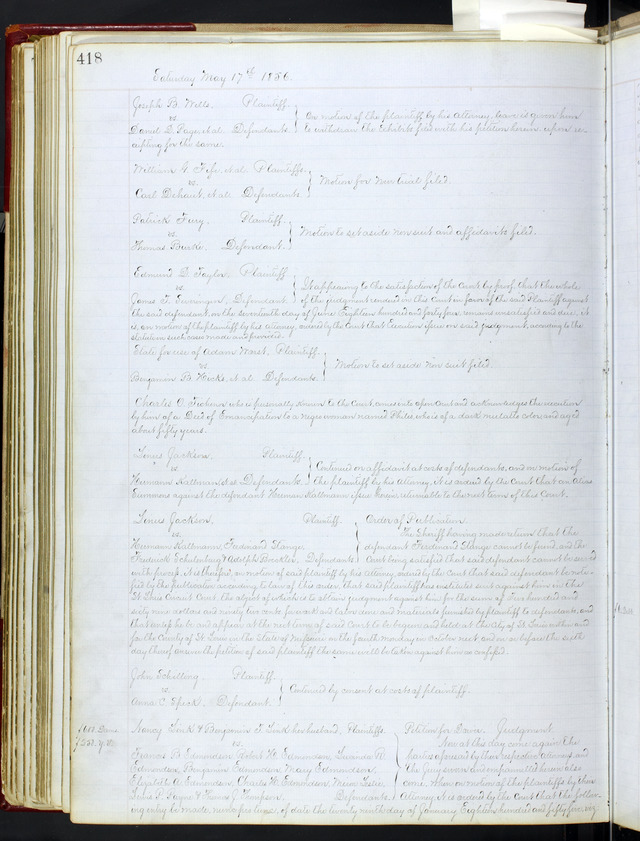 418
Saturday May 17th 1856.
Joseph B. Wells. Plaintiff.
vs.
On motion of the plaintiff by his Attorney, leave is given him
Daniel D. Page et al. Defendants.
to withdraw the Exhibits filed with his petition herein, upon re-
ceipting for the same.
William G. Fife, et al. Plaintiffs.
vs.
Motion for New trial filed.
Carl Dehault, et al. Defendants.
Patrick Fury. Plaintiff.
vs.
Motion to set aside non suit and affidavits filed.
Thomas Burke. Defendant.
Edmund D. Taylor. Plaintiff
vs.
It appearing to the satisfaction of the Court by proof that the whole
James F. Defendant.
of the judgment rendered in this Court in favor of the said Plaintiff against
the said defendant, on the seventeenth day of June Eighteen hundred and forty four, remains unsatisfied and due, it
is, on motion of the plaintiff by his attorney, ordered by the Court that Execution issue on said judgment, according to the
statute in such case made and provided.
State for use of Adam Plaintiff.
vs.
Motion to set aside Non suit filed.
Benjamin B. Hicks, et al. Defendants.
Charles O. who is personally known to the Court, comes into open Court and acknowledges the execution
by him of a Deed of Emancipation to a Negro woman named Philis, who is of a dark mulatto color, and aged
about fifty years.
Linus Jackson. Plaintiff.
vs.
Continued on affidavit at costs of defendants, and on motion of
Hermann Kallmann, et al. Defendants.
the plaintiff by his Attorney, it is ordered by the Court that an Alias
Summons against the defendant Hermann Kallmann issue herein, returnable to the next term of this Court.
Linus Jackson. Plaintiff.
Order of Publication.
vs.
The Sheriff having made return that the
Hermann Kallmann, Ferdinand Stange,
defendant Ferdinand Stange cannot be found, and the
Frederick Schulenburg & Adolph Boeckler, Defendants.
Court being satisfied that said defendant cannot be served
with process. It is therefore, on motion of said plaintiff by his attorney, ordered by the Court that said defendant be noti-
fied by the publication according to law of this order, that said plaintiff has instituted suit against him in the
St. Louis Circuit Court, the object of which is to obtain judgment against him for the sum of Five hundred and
sixty nine dollars and ninety two cents for work and labor done and materials furnished by plaintiff to defendants, and
that unless he be and appear at the next term of said Court to be begun and held at the City of St. Louis within and
for the County of St. Louis in the State of Missouri on the fourth Monday in October next, and on or before the sixth
day thereof answer the petition of said plaintiff the same will be taken against him as confessed.
John Schelling. Plaintiff.
vs.
Continued by consent at costs of plaintiff.
Anna C. Speck. Defendant.
Nancy Link & Benjamin F. Link her husband, Plaintiffs.
Petition for Dower. Judgment.
vs.
Now at this day come again the
Francis B. Edmondson, Robert H. Edmondson,
parties aforesaid by their respective attorneys, and
Edmondson, Benjamin Edmondson, Mary Edmondson,
the jury sworn and empannelled herein also
Elizabeth A. Edmondson, Charles H. Edmondson,
come. When on motion of the plaintiffs by their
John P. Payne & Thomas J. Thompson. Defendants.
Attorney, it is ordered by the Court that the follow-
ing entry be made now for then, of date the twenty ninth day of January Eighteen hundred and fifty five, viz